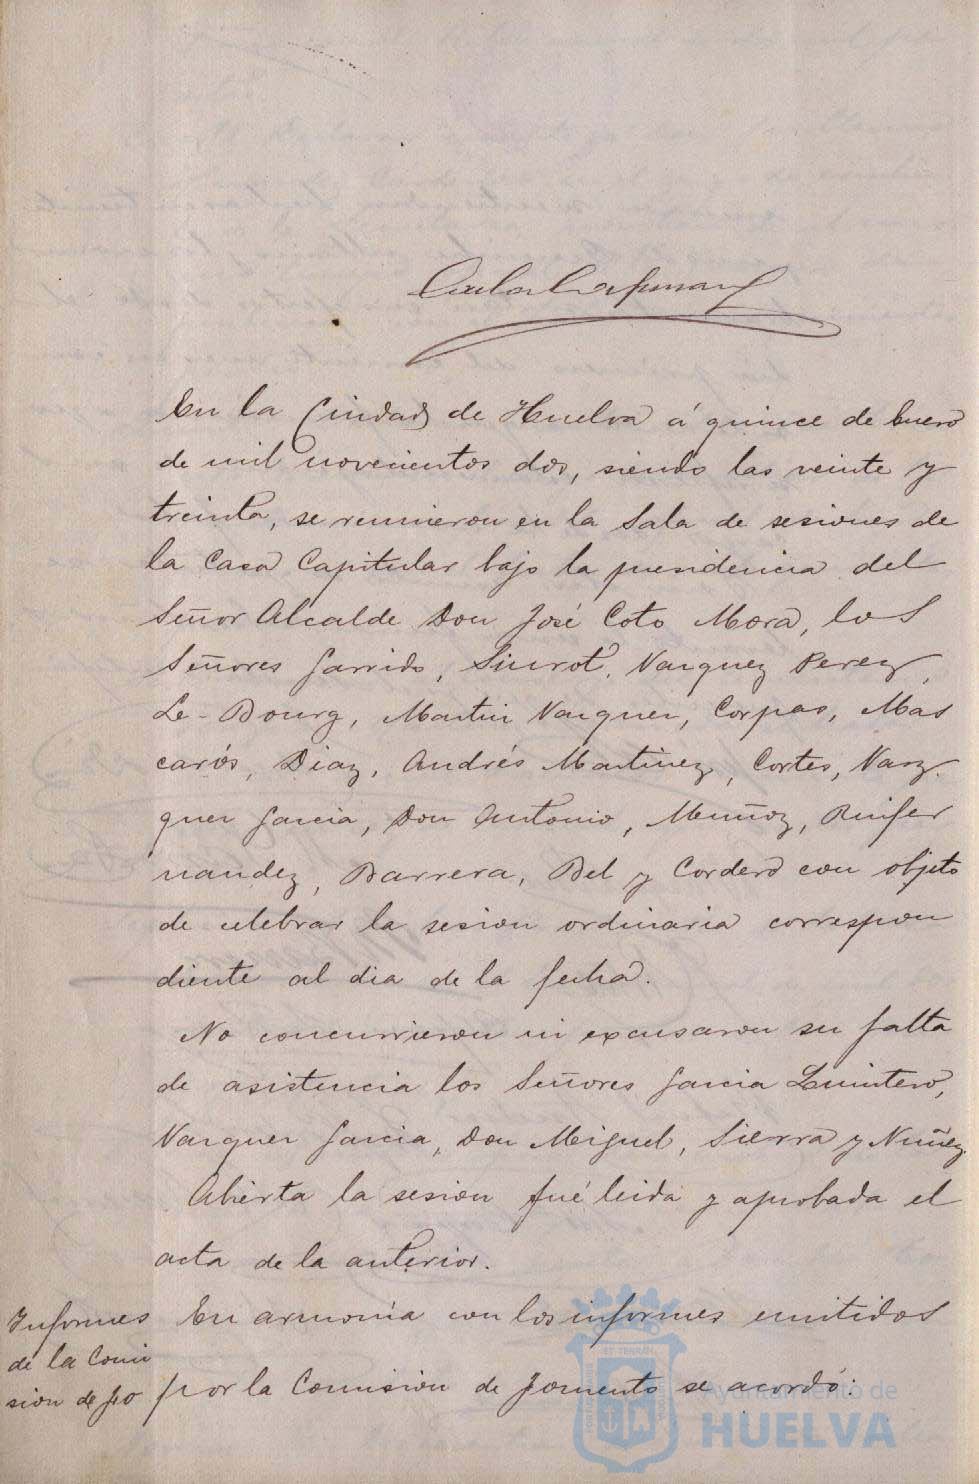 En la Ciudad de Huelva á quince de Enero
de mil novecientos dos, siendo las veinte y
treinta, se reunieron en la Sala de sesiones de
la Casa Capitular bajo la presidencia del
Señor Alcalde Don José Coto Mora, los
Señores Garrido, Siurot, Vazquez Perez,
Le-Bourg, Martin Vazquez, Corpas, Mas
carós, Diaz, Andrés Martinez, Cortes, Vaz
quez Garcia, Don Antonio, Muñoz, Ruifer
nandez, Barrera, Bel y Cordero con objeto
de celebrar la sesion ordinaria correspon
diente al dia de la fecha.
No concurrieron ni excusaron su falta
de asistencia los Señores Garcia Quintero,
Vazquez Garcia, Don Miguel, Sierra y Nuñez.
Abierta la sesion fué leida y aprobada el
acta de la anterior.
Informes
de la Comi
sion de Fo
En armonía con los informes emitidos
por la Comision de Fomento se acordó:
Ayuntamiento de
HUELVA